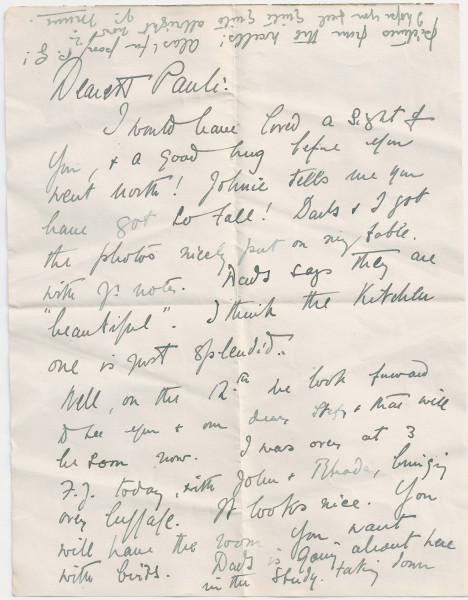 Dearest Pauli:
I would have loved a sight of
you, & a good hug before you
went north! Johnie tells me you
have got so tall! Dads & I got
the photos nicely put on my table.
with yr notes. Dads says they are
"beautiful". I think the Kitchen
one is just splendid.
Well, on the we look forward
to see you & our dear & that will
be soon now. I was over at 3
F.J. today, with John & Rhoda, bringing
over luggage. It looks nice. You
will have the room you want
with birds. Dads is going about here
in the study. taking down
pictures from the walls!
I hope you feel quite quite allright now